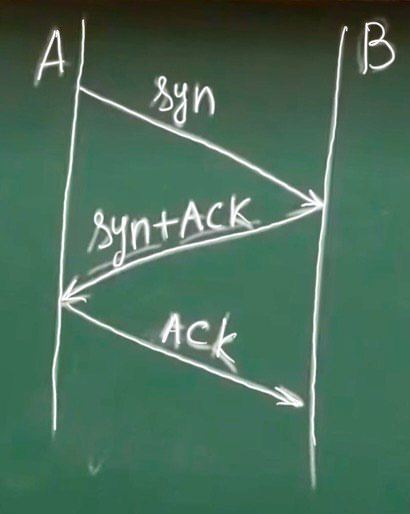 A B
syn
syn+ACK
ACK